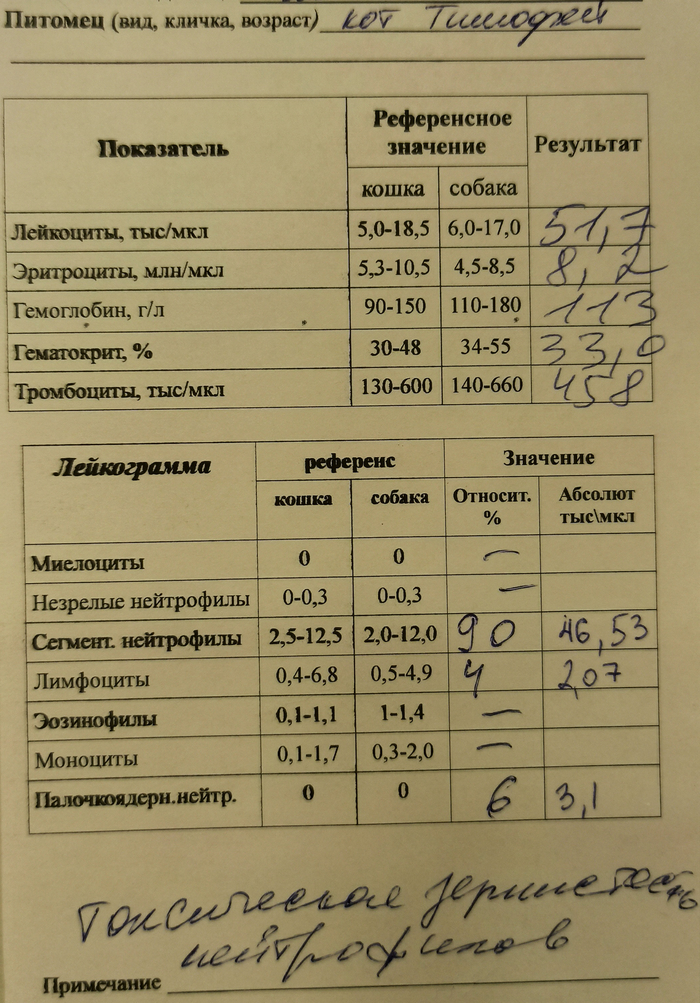 Питомец (вид, кличка, возраст) кот Тимофей
Показатель Референсное значение Результат
кошка собака
Лейкоциты, тыс/мкл 5,0-18,5 6,0-17,0 51,7
Эритроциты, млн/мкл 5,3-10,5 4,5-8,5 8,2
Гемоглобин, г/л 90-150 110-180 113
Гематокрит, % 30-48 34-55 33,0
Тромбоциты, тыс/мкл 130-600 140-660 458
Лейкограмма референс Значение
кошка собака Относит. % Абсолют тыс\мкл
Миелоциты 0 0 —
Незрелые нейтрофилы 0-0,3 0-0,3 —
Сегмент. нейтрофилы 2,5-12,5 2,0-12,0 90 46,53
Лимфоциты 0,4-6,8 0,5-4,9 4 2,07
Эозинофилы 0,1-1,1 1-1,4 —
Моноциты 0,1-1,7 0,3-2,0 —
Палочкоядерн.нейтр. 0 0 6 3,1
Токсическая зернистость
нейтрофилов
Примечание